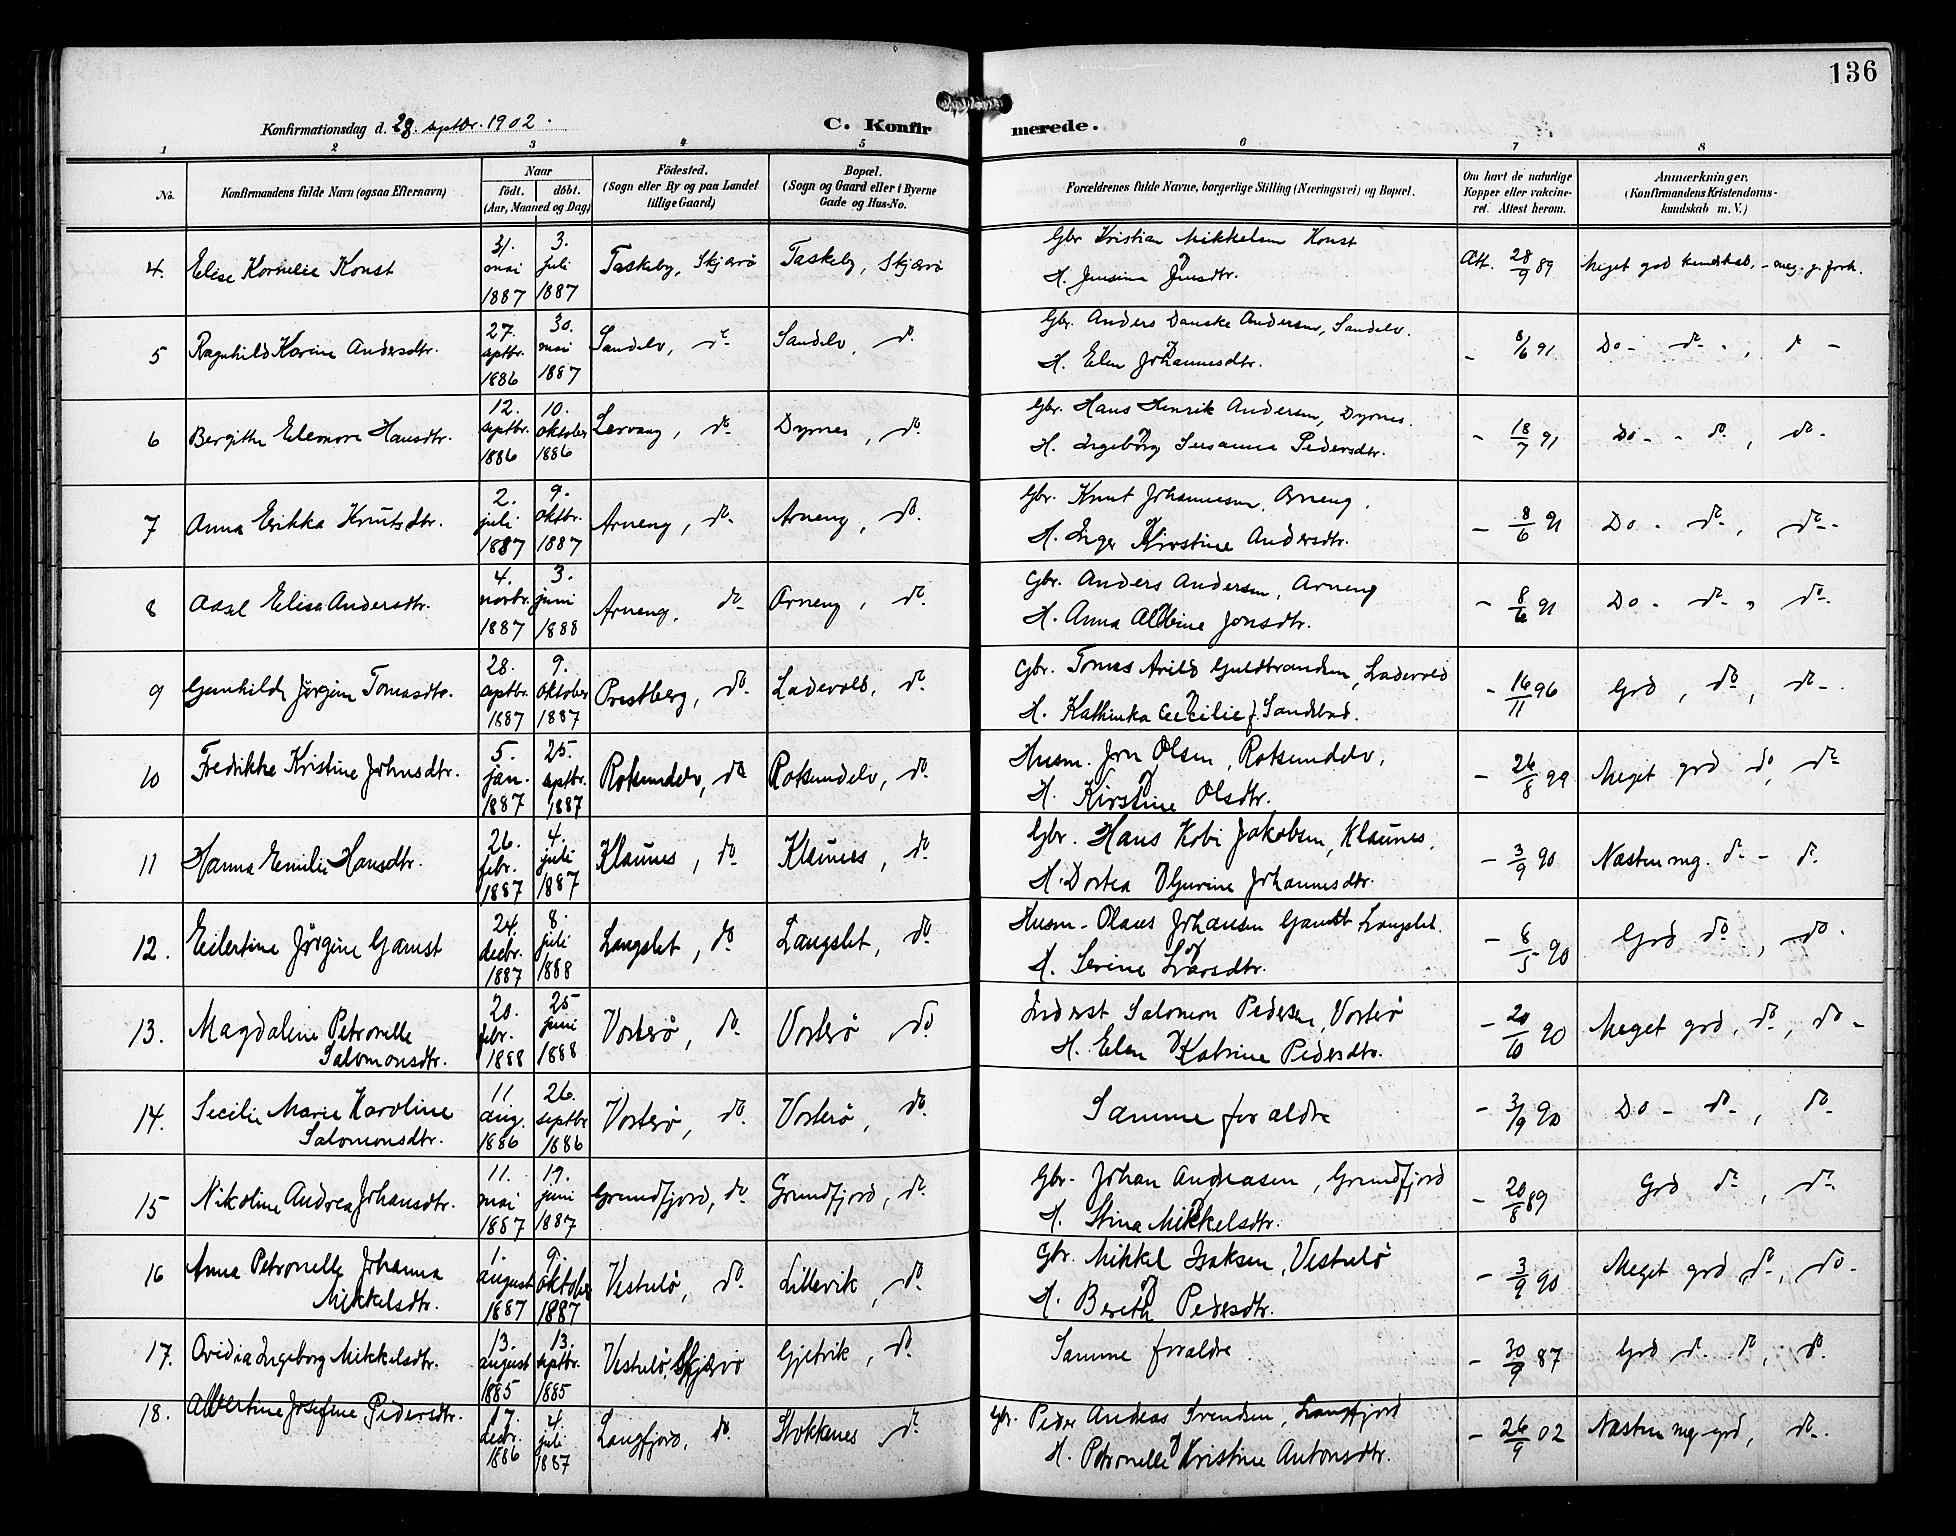 136
Konfirmationsdag d. 28. septbr. 1902.
C. Konfirmerede.
1 2 3 4 5 6 7 8
No.
Konfirmandens fulde Navn (ogsaa Efternavn)
Naar
födt. döbt.
(Aar, Maaned og Dag)
Födested.
(Sogn eller By og paa Landet
tillige Gaard)
Bopæl.
(Sogn og Gaard eller i Byerne
Gade og Hus-No.
Forældrenes fulde Navne, borgerlige Stilling (Næringsvei) og Bopæl.
Om havt de naturlige
Kopper eller vakcine-
ret. Attest herom.
Anmærkninger.
(Konfirmandens Kristendoms-
kundskab m. V.)
4. Elise Kornelie Konst 31. mai 1887 3. juli 1887 Taskeby, Skjærö Taskeby, Skjærö Gbr Kristian Mikkelsen Konst
H. Jensine Jensdtr. Att. 28/9 89 Meget god kundskab, - meg. g. forh.
5 Ragnhild Karine Andersdtr. 27. septbr. 1886 30. mai 1887 Sandelv, do Sandelv, do Gbr. Anders Danske Andersen, Sandelv.
H. Elen Johannesdtr. - 8/6 91 Do - do - , do -
6 Bergithe Eleonora Hansdtr. 12. septbr. 1886 10. oktober 1886 Lervaag, do Dyrnes, do Gbr. Hans Henrik Andersen, Dyrnes.
H. Ingeborg Susanna Pedersdtr. - 18/7 91 Do - - do, do -
7 Anna Erikka Knutsdtr. 2. juli 1887 9. oktbr. 1887 Arneng, do Arneng, do Gbr. Knut Johannesen, Arneng.
H. Inger Kirstine Andersdtr. - 8/6 91 Do - do, do -
8 Aasel Elisa Andersdtr. 4. novbr. 1887 3. juni 1888 Arneng, do Arneng, do Gbr. Anders Andersen, Arneng
H. Anna Albine Jonsdtr. - 8/6 91 Do - do, do
9 Gunhild Jörgine Tomasdtr. 28. septbr. 1887 9. oktober 1887 Prestberg, do Ladevold, do Gbr. Tomas Arild Guldbrandsen, Ladevold
H. Kathinka Cecilie f. Sandebud. - 16/11 96 God, do, do -
10 Fredrikke Kristine Johnsdtr. 5. jan. 1887 25. septbr. 1887 Rotsundelv, do Rotsundelv, do Husm. Jon Olsen, Rotsundelv,
H. Kirstine Olsdtr. - 26/8 99 Meget god do, do
11 Hanna Emilie Hansdtr. 26. febr. 1887 4. juli 1887 Klaunes, do Klaunes, do Gbr. Hans Kobi Jakobsen, Klaunes.
H. Dortea Gurine Johannesdtr. - 3/9 90 Næsten mg. do - do
12. Eilertine Jörgine Gamst 24. decbr. 1887 8. juli 1888 Langslet, do Langslet, do Husm - Olaus Johansen Gamst Langslet.
H. Serine Larsdtr. - 8/5 90 God do, do
13. Magdaline Petronelle
Salomonsdtr. 20. febr. 1888 25 juni 1888 Vorterö, do Vorterö do Inderst Salomon Pedersen, Vorterö
H. Elen Katrine Pedersdtr. - 20/10 90 Meget god, do, do -
14. Secilie Marie Karoline
Salomonsdtr. 11 aug. 1886 26. septbr 1886 Vorterö, do Vorterö, do Samme forældre - 3/9 90 Do - do, do
15 Nikoline Andrea Johansdtr. 11. mai 1887 19. juni 1887 Grundfjord, do Grundfjord, do Gbr. Johan Andreasen, Grundfjord
H. Stina Mikkelsdtr. - 20/8 89 God do, do
16 Anna Petronelle Johanna
Mikkelsdtr. 1. august 1887 9. oktober 1887 Vestulö, do Lillevik, do Gbr. Mikkel Isaksen, Vestulö
H. Bereth Pedersdtr. - 3/9 90 Meget god do, do -
17. Ovidia Ingeborg Mikkelsdtr. 13. august 1885 13. septbr. 1885 Vestulö, Skjærvö Gjetvik, do Samme forældre - 30/9 87 God do do, do
18. Albertine Josefine Pedersdtr. 17. decbr. 1886 4. juli 1887 Langfjord, do Stokkenes, do Gbr. Peder Andreas Svendsen, Langfjord
H. Petronelle Kristine Antonsdtr. - 26/9 02 Næsten mg god, do